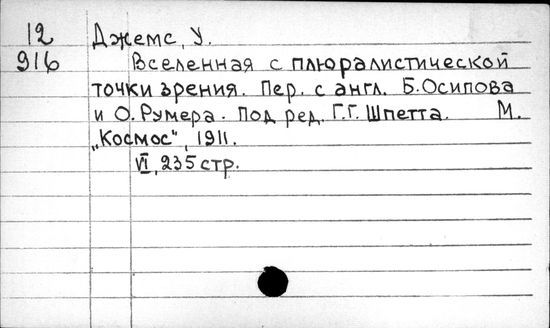 12 Джемс, У.
916 Вселенная с плюралистической
точки зрения. Пер. с англ. Б. Осипова
и О. Румера. Под ред. Г.Г. Шпетта. М.
„Космос", 1911.
VI, 235 стр.